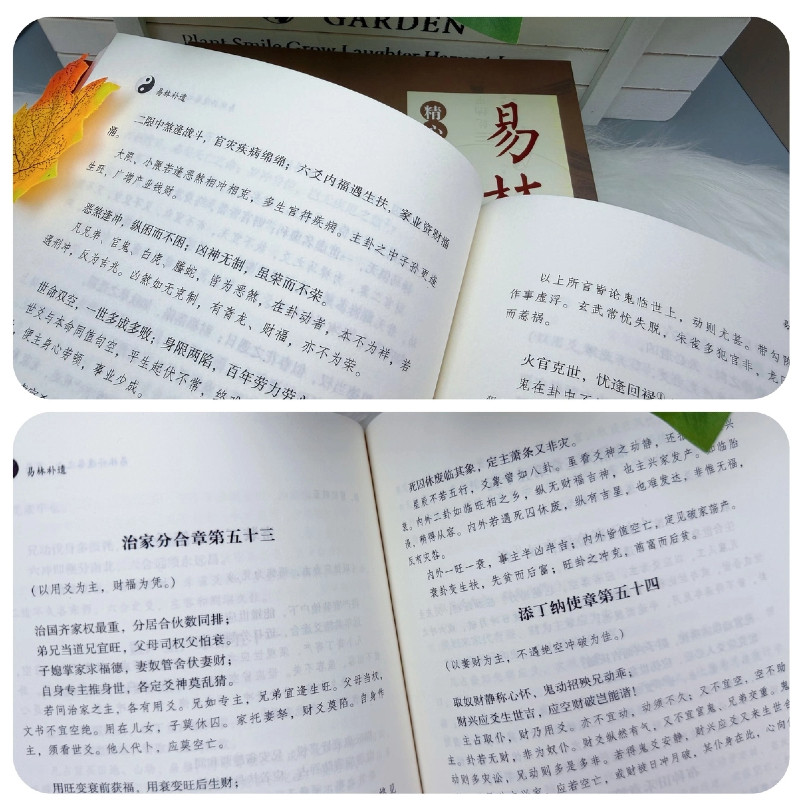 GARDEN
Plant Smile Grow Laughter Harvest L
易林补遗
精
易
林
二限中煞逢战斗，官灾疾病绵绵；六爻内福遇生扶，家业资财福
满。
大限、小限若逢恶煞相冲相克，多生官符疾病。主卦之中子孙更临
生旺，广增产业钱财。
恶煞逢冲，纵困而不困；凶神无制，虽荣而不荣。
凡兄弟、官鬼、白虎、螣蛇，皆为恶煞，在卦动者，本不为祥，若
遇刑冲，反为吉兆。凶煞如无克制，有青龙、财福，亦不为荣。
世命双空，一世多成多败；身限两陷，百年劳力劳
世爻与本命同值旬空，平生起伏不常，终
，便主身心劳顿，事业少成。
以上所官皆论鬼临世上，动则尤甚。带勾陈
作事虚浮。玄武常忧失脱，朱雀多犯官非，龙
而惹祸。
火官克世，忧逢回禄①
鬼在卦中不
易林补遗
治家分合章第五十三
（以用爻为主，财福为凭。）
治国齐家权最重，分居合伙数同排；
弟兄当道兄宜旺，父母司权父怕衰。
子媳掌家求福德，妻奴管舍伏妻财；
自身专主推身世，各定爻神莫乱猜。
若问治家之主，各有用爻。兄如专主，兄弟宜逢生旺。父母当权，
文书不宜空绝。用在儿女，子莫休囚。家托妻孥，财爻莫陷。自身作
主，须看世爻。他人代卜，应莫空亡。
用旺变衰前获福，用衰变旺后生财；
死囚休废临其象，定主萧条又非灾。
星辰不若五行，爻象管如八卦。虽看爻神之动静，还
衰。内外二卦如临旺相之乡，纵无财福吉神，也主兴家发产。
没、稍得从容。内外若遇死囚休废，纵有吉星，也难发达，非惟无福，
反有灾咎。
内外一旺一衰，事主半凶半吉；内外皆值空亡，定见破家荡产。
衰卦变生扶，先贫而后富；旺卦之冲克，前富而后贫。
添丁纳使章第五十四
（以妻财为主，不遇绝空冲破为佳。）
取奴财静称心怀，鬼动招殃兄动乖；
财兴应爻生世吉，应空财破岂能谐！
主占取仆，财乃用爻。亦不宜动，动须不久；又不宜空，空不助
主卦若无财，非为奴仆。财爻纵然有气，又不宜官鬼、兄弟交重。鬼
动则多灾讼，兄动则多是多非。若得鬼爻安静，财兴应爻又来生世合
，应若空亡，或财被日冲月破，其仆身在此，心向